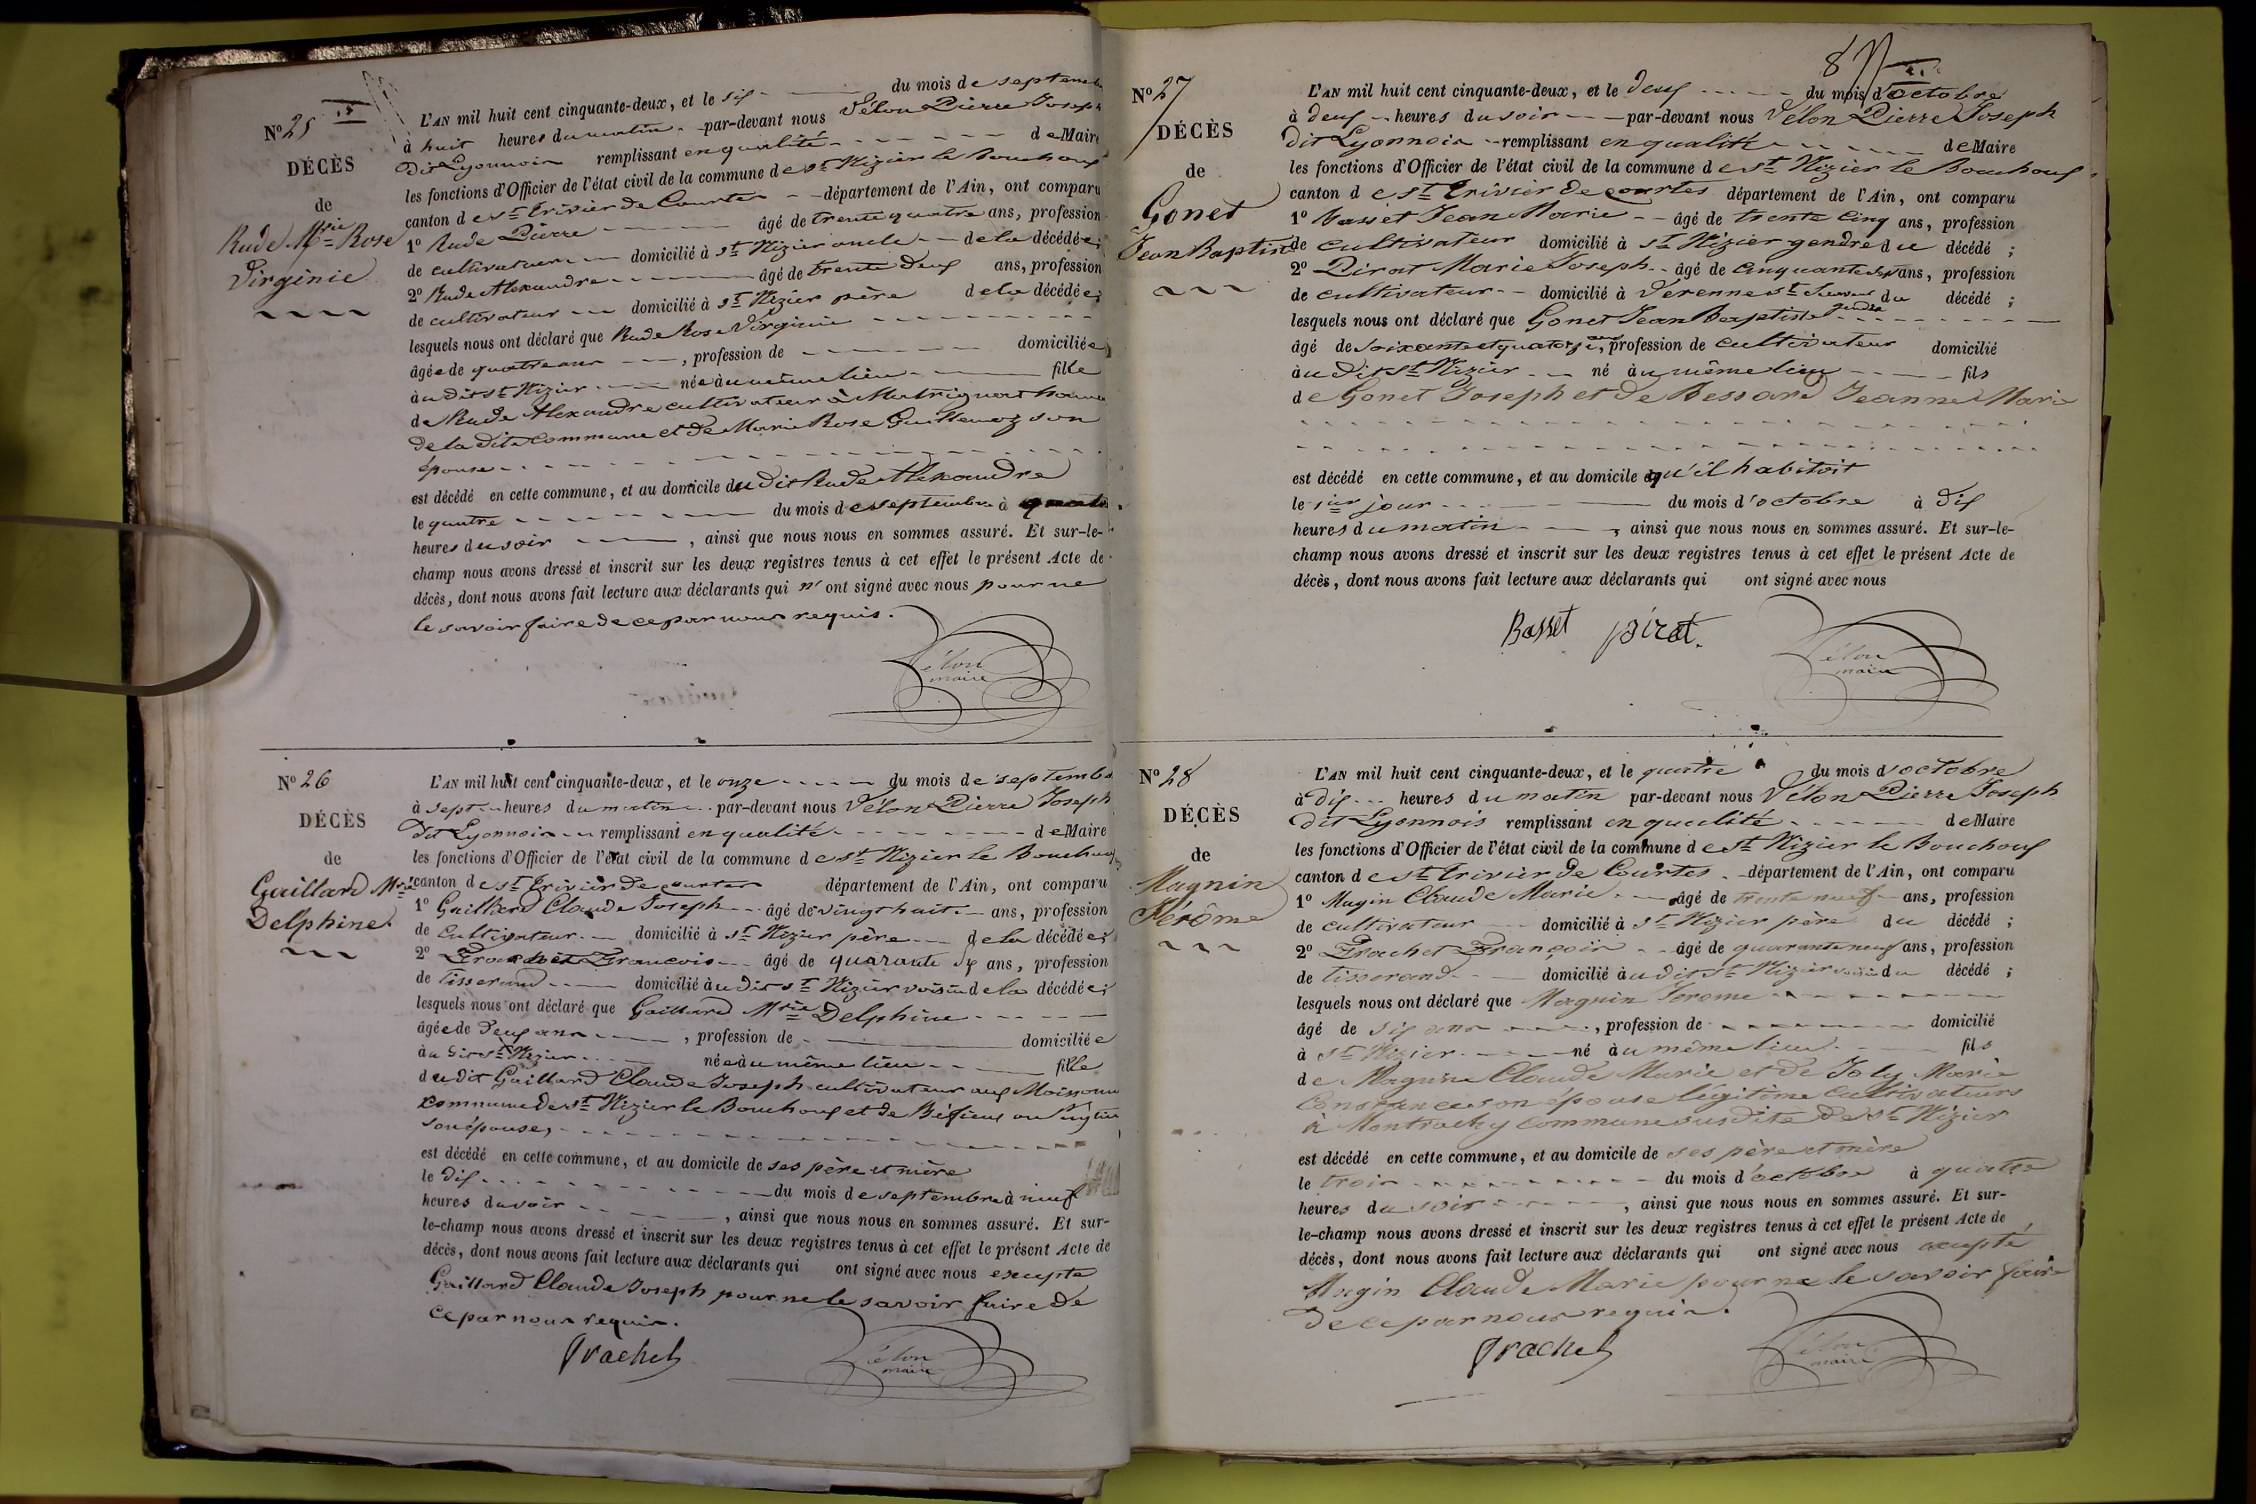 N° 25
DÉCÈS
de
Rude Mrie Rose
Virginie
L'AN mil huit cent cinquante-deux, et le six du mois de septembre
à huit heures du matin par-devant nous Vélon Pierre Joseph
dit Lyonnois remplissant en qualité de Maire
les fonctions d'Officier de l'état civil de la commune de st Nizier le Bouchoux
canton de st Trivier de Courtes département de l'Ain, ont comparu
1° Rude Pierre âgé de trente quatre ans, profession
de cultivateur domicilié à st Nizier oncle de la décédée;
2° Rude Alexandre âgé de trente deux ans, profession
de cultivateur domicilié à st Nizier père de la décédée;
lesquels nous ont déclaré que Rude Rose Virginie
âgée de quatre ans, profession de domiciliée
au dit st Nizier née au même lieu fille
de Rude Alexandre cultivateur à
de la dite commune et de Marie Rose Guillemoz son
épouse
est décédé en cette commune, et au domicile du dit Rude Alexandre
le quatre du mois de septembre à
heures du soir, ainsi que nous nous en sommes assuré. Et sur-le-
champ nous avons dressé et inscrit sur les deux registres tenus à cet effet le présent Acte de
décès, dont nous avons fait lecture aux déclarants qui n'ont signé avec nous pour ne
le savoir faire de ce par nous requis.
Vélon
maire
N° 26
DÉCÈS
de
Gaillard Mrie
Delphine
L'AN mil huit cent cinquante-deux, et le onze du mois de septembre
à sept heures du matin par-devant nous Vélon Pierre Joseph
dit Lyonnois remplissant en qualité de Maire
les fonctions d'Officier de l'état civil de la commune de st Nizier le Bouchoux
canton de st Trivier de courtes département de l'Ain, ont comparu
1° Gaillard Claude Joseph âgé de vingt huit ans, profession
de Cultivateur domicilié à st Nizier père de la décédée;
2° Prachet Francois âgé de quarante six ans, profession
de Tisserand domicilié au dit st Nizier voisin de la décédée;
lesquels nous ont déclaré que Gaillard Mrie Delphine
âgée de deux ans, profession de domiciliée
au dit st Nizier née au même lieu fille
du dit Gaillard Claude Joseph cultivateur aux
commune de st Nizier le Bouchoux et de
son épouse,
est décédé en cette commune, et au domicile de ses père et mère
le dix du mois de septembre à neuf
heures du soir, ainsi que nous nous en sommes assuré. Et sur-
le-champ nous avons dressé et inscrit sur les deux registres tenus à cet effet le présent Acte de
décès, dont nous avons fait lecture aux déclarants qui ont signé avec nous excepté
Gaillard Claude Joseph pour ne le savoir faire de
ce par nous requis.
Prachet
Vélon
maire
N° 27
DÉCÈS
de
Gonet
Jean Baptiste
L'AN mil huit cent cinquante-deux, et le deux du mois d'octobre
à deux heures du soir par-devant nous Vélon Pierre Joseph
dit Lyonnois remplissant en qualité de Maire
les fonctions d'Officier de l'état civil de la commune de st Nizier le Bouchoux
canton de st Trivier de courtes département de l'Ain, ont comparu
1° Basset Jean Marie âgé de trente cinq ans, profession
de cultivateur domicilié à st Nizier gendre du décédé;
2° Pirat Marie Joseph âgé de cinquante ans, profession
de cultivateur domicilié à Verenne st du décédé;
lesquels nous ont déclaré que Gonet Jean Baptiste
âgé de soixante et quatorze ans, profession de cultivateur domicilié
au dit st Nizier né au même lieu fils
de Gonet Joseph et de Bessard Jeanne Marie
est décédé en cette commune, et au domicile qu'il habitoit
le 1ier jour du mois d'octobre à dix
heures du matin, ainsi que nous nous en sommes assuré. Et sur-le-
champ nous avons dressé et inscrit sur les deux registres tenus à cet effet le présent Acte de
décès, dont nous avons fait lecture aux déclarants qui ont signé avec nous
Basset pirat.
Vélon
maire
N° 28
DÉCÈS
de
Magnin
Jérôme
L'AN mil huit cent cinquante-deux, et le quatre du mois d'octobre
à dix heures du matin par-devant nous Vélon Pierre Joseph
dit Lyonnois remplissant en qualité de Maire
les fonctions d'Officier de l'état civil de la commune de st Nizier le Bouchoux
canton de st Trivier de Courtes département de l'Ain, ont comparu
1° Magin Claude Marie âgé de trente neuf ans, profession
de cultivateur domicilié à st Nizier père du décédé;
2° Prachet François âgé de quarante neuf ans, profession
de tisserand domicilié au dit st Nizier voisin du décédé;
lesquels nous ont déclaré que Magnin Jerome
âgé de six ans, profession de domicilié
à st Nizier né au même lieu fils
de Magnin Claude Marie et de Joly Marie
Constance son épouse légitime Cultivateurs
à commune susdite de st Nizier
est décédé en cette commune, et au domicile de ses père et mère
le trois du mois d'octobre à quatre
heures du soir, ainsi que nous nous en sommes assuré. Et sur-
le-champ nous avons dressé et inscrit sur les deux registres tenus à cet effet le présent Acte de
décès, dont nous avons fait lecture aux déclarants qui ont signé avec nous excepté
Magin Claude Marie pour ne le savoir faire
de ce par nous requis.
Prachet
Vélon
maire